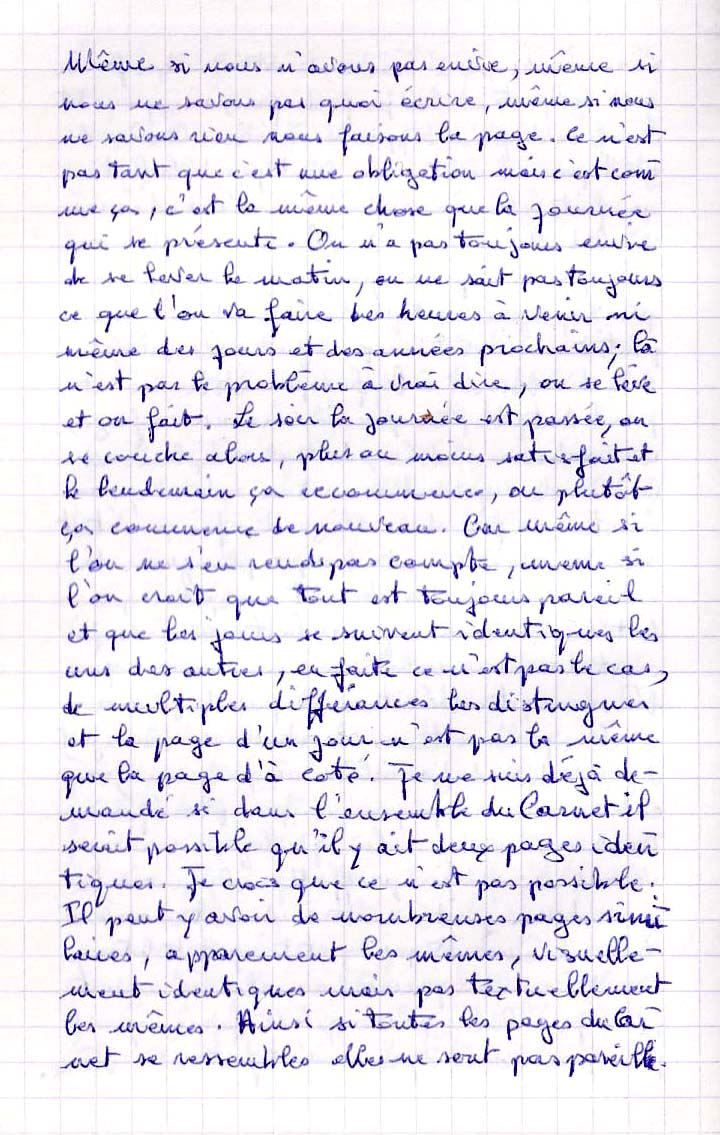 Même si nous n'avons pas envie, même si
nous ne savons pas quoi écrire, même si nous
ne savons rien nous faisons la page. Ce n'est
pas tant que c'est une obligation mais c'est com
me ça, c'est la même chose que la journée
qui se présente. On n'a pas toujours envie
de se lever le matin, on ne sait pas toujours
ce que l'on va faire les heures à venir ni
même des jours et des années prochains; là
n'est pas le problème à vrai dire, on se lève
et on fait. Le soir la journée est passée, on
se couche alors, plus ou moins satisfait et
le lendemain ça recommence, ou plutôt
ça commence de nouveau. Car même si
l'on ne s'en rends pas compte, même si
l'on croit que tout est toujours pareil
et que les jours se suivent identiques les
uns des autres, en faite ce n'est pas le cas,
de multiples différences les distingues
et la page d'un jour n'est pas la même
que la page d'à coté. Je me suis déjà de-
mandé si dans l'ensemble du Carnet il
serait possible qu'il y ait deux pages iden
tiques. Je crois que ce n'est pas possible.
Il peut y avoir de nombreuses pages simi
laires, apparement les mêmes, visuelle-
ment identiques mais pas textuellement
les mêmes. Ainsi si toutes les pages du Car
net se ressembles elles ne sont pas pareille.